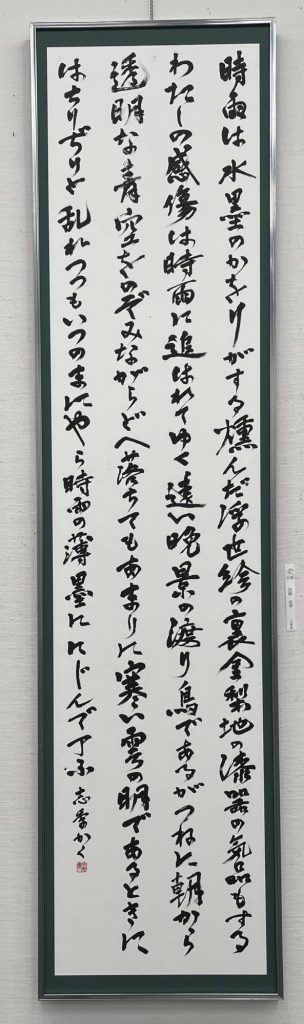 時雨は水墨のかをりがする燻んだ浮世絵の裏金梨地の漆器の気品もする
わたしの感傷は時雨に追はれてゆく遠い晩景の渡り鳥であるがつねに朝から
透明な青空をのぞみながらどへ落ちてもあまりに寒い雲の明であるときに
はちりぢりと乱れつつもいつのまにやら時雨の薄墨ににじんで了ふ 志季かく